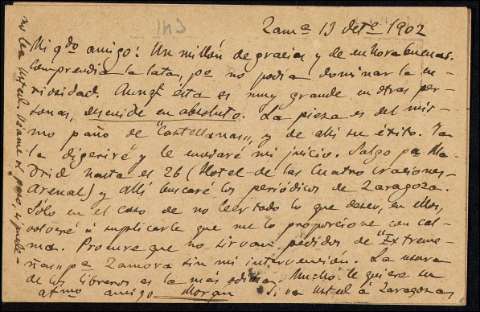 Zamª 13 Octe 1902
Mi qdo amigo: Un millón de gracias y de enhorabuenas.
Comprendía la lata, pe no podía dominar la cu-
riosidad. Aunqe esta es muy grande en otras per-
sonas, descuide en absoluto. La pieza es del mis-
mo paño de "Castellanas, y de allí su éxito. Ya
la digeriré y le enviaré mi juicio. Salgo pa Ma-
drid hasta el 26 (Hotel de las Cuatro Naciones-
Arenal) y allí buscaré los periódicos de Zaragoza.
Sólo en el caso de no leer todo lo que deseo, en ellos,
volveré á suplicarle que me lo proporcione con cal-
ma. Procure que no sirvan pedidos de "Extreme-
ñas" pa Zamora sin mi intervención. La
de los libreros es la más Mucho le quiere su
afmo amigo Morgan Si va usted á Zaragoza